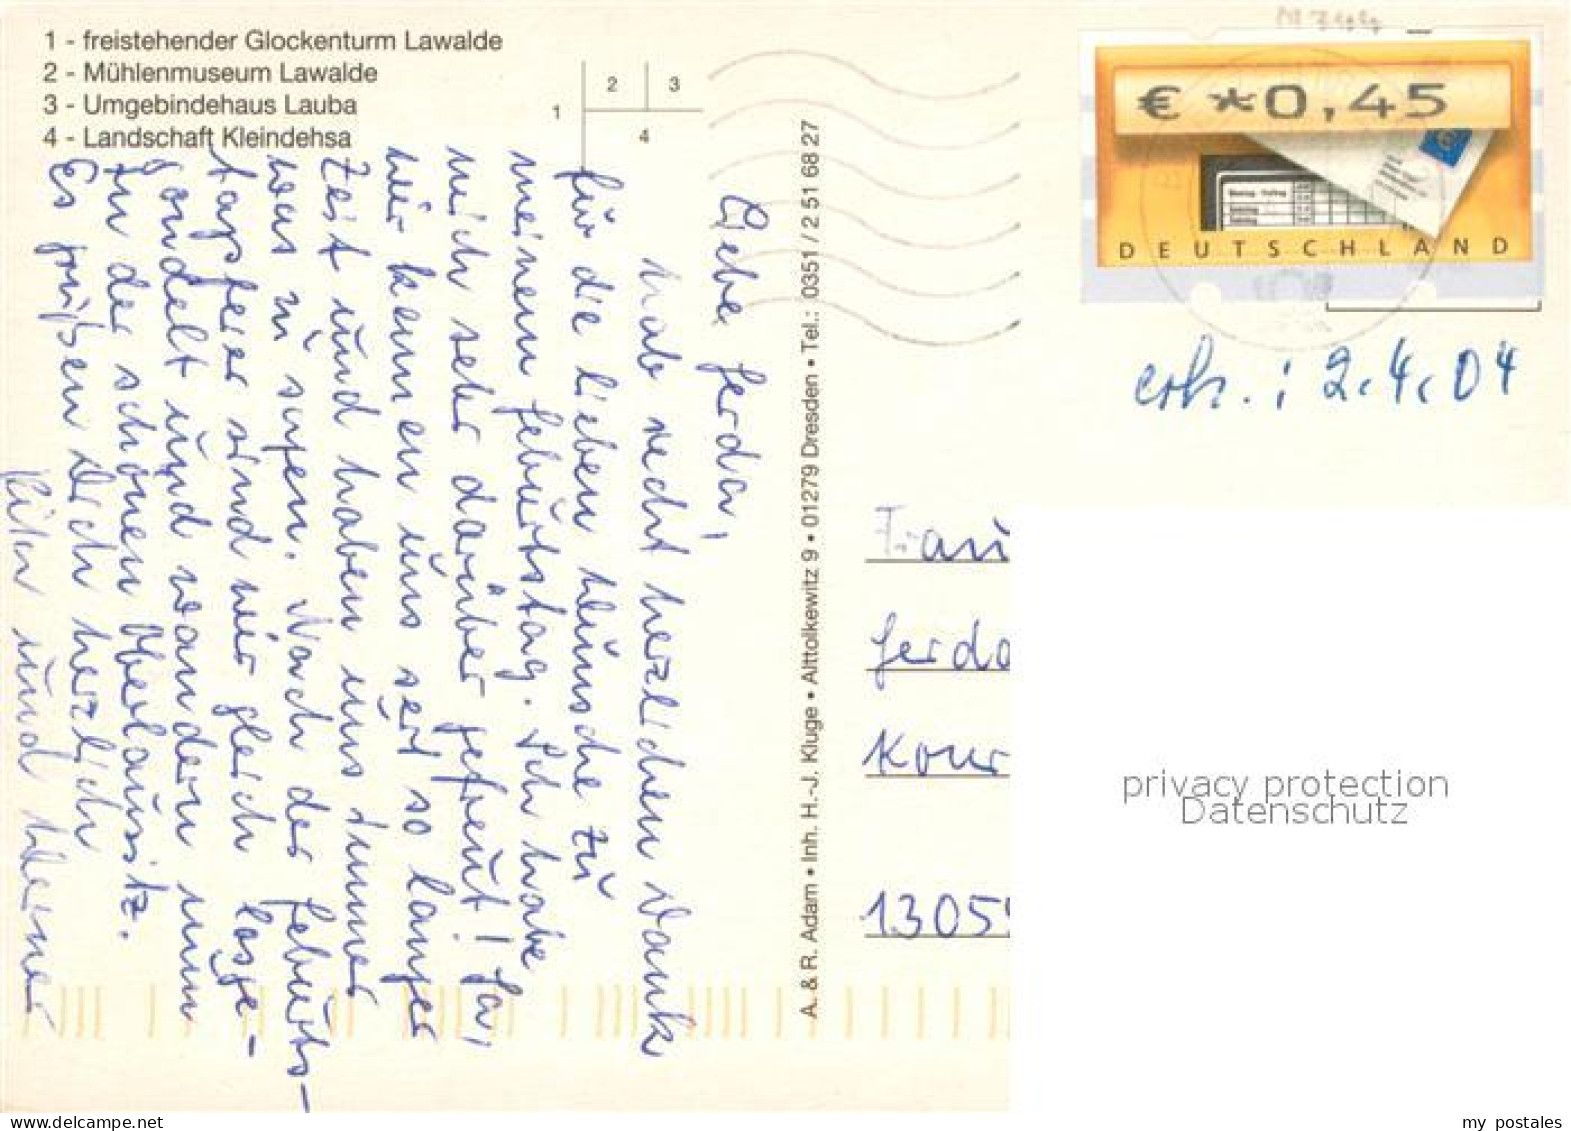 1 - freistehender Glockenturm Lawalde
2 - Mühlenmuseum Lawalde
3 - Umgebindehaus Lauba
4 - Landschaft Kleindehsa
1
2
3
4
€ *0,45
DEUTSCHLAND
erh.: 2.4.04
Liebe Gerda,
Hab recht herzlichen Dank
für die lieben Wünsche zu
meinem Geburtstag. Ich habe
mich sehr darüber gefreut! Ja,
wir kennen uns seit so langer
Zeit und haben uns immer
was zu sagen. Nach der Geburts-
tagsfeier sind wir gleich losge-
gondelt und wandern nun
in der schönen Oberlausitz.
Es grüßen Dich herzlich
Rita und Werner
A. & R. Adam • Inh. H.-J. Kluge • Alttolkewitz 9 • 01279 Dresden • Tel.: 0351 / 2 51 68 27
Frau
Gerda
Konr
1305
privacy protection
Datenschutz
delcampe.net/Versandhandel_Boeger
my_postales